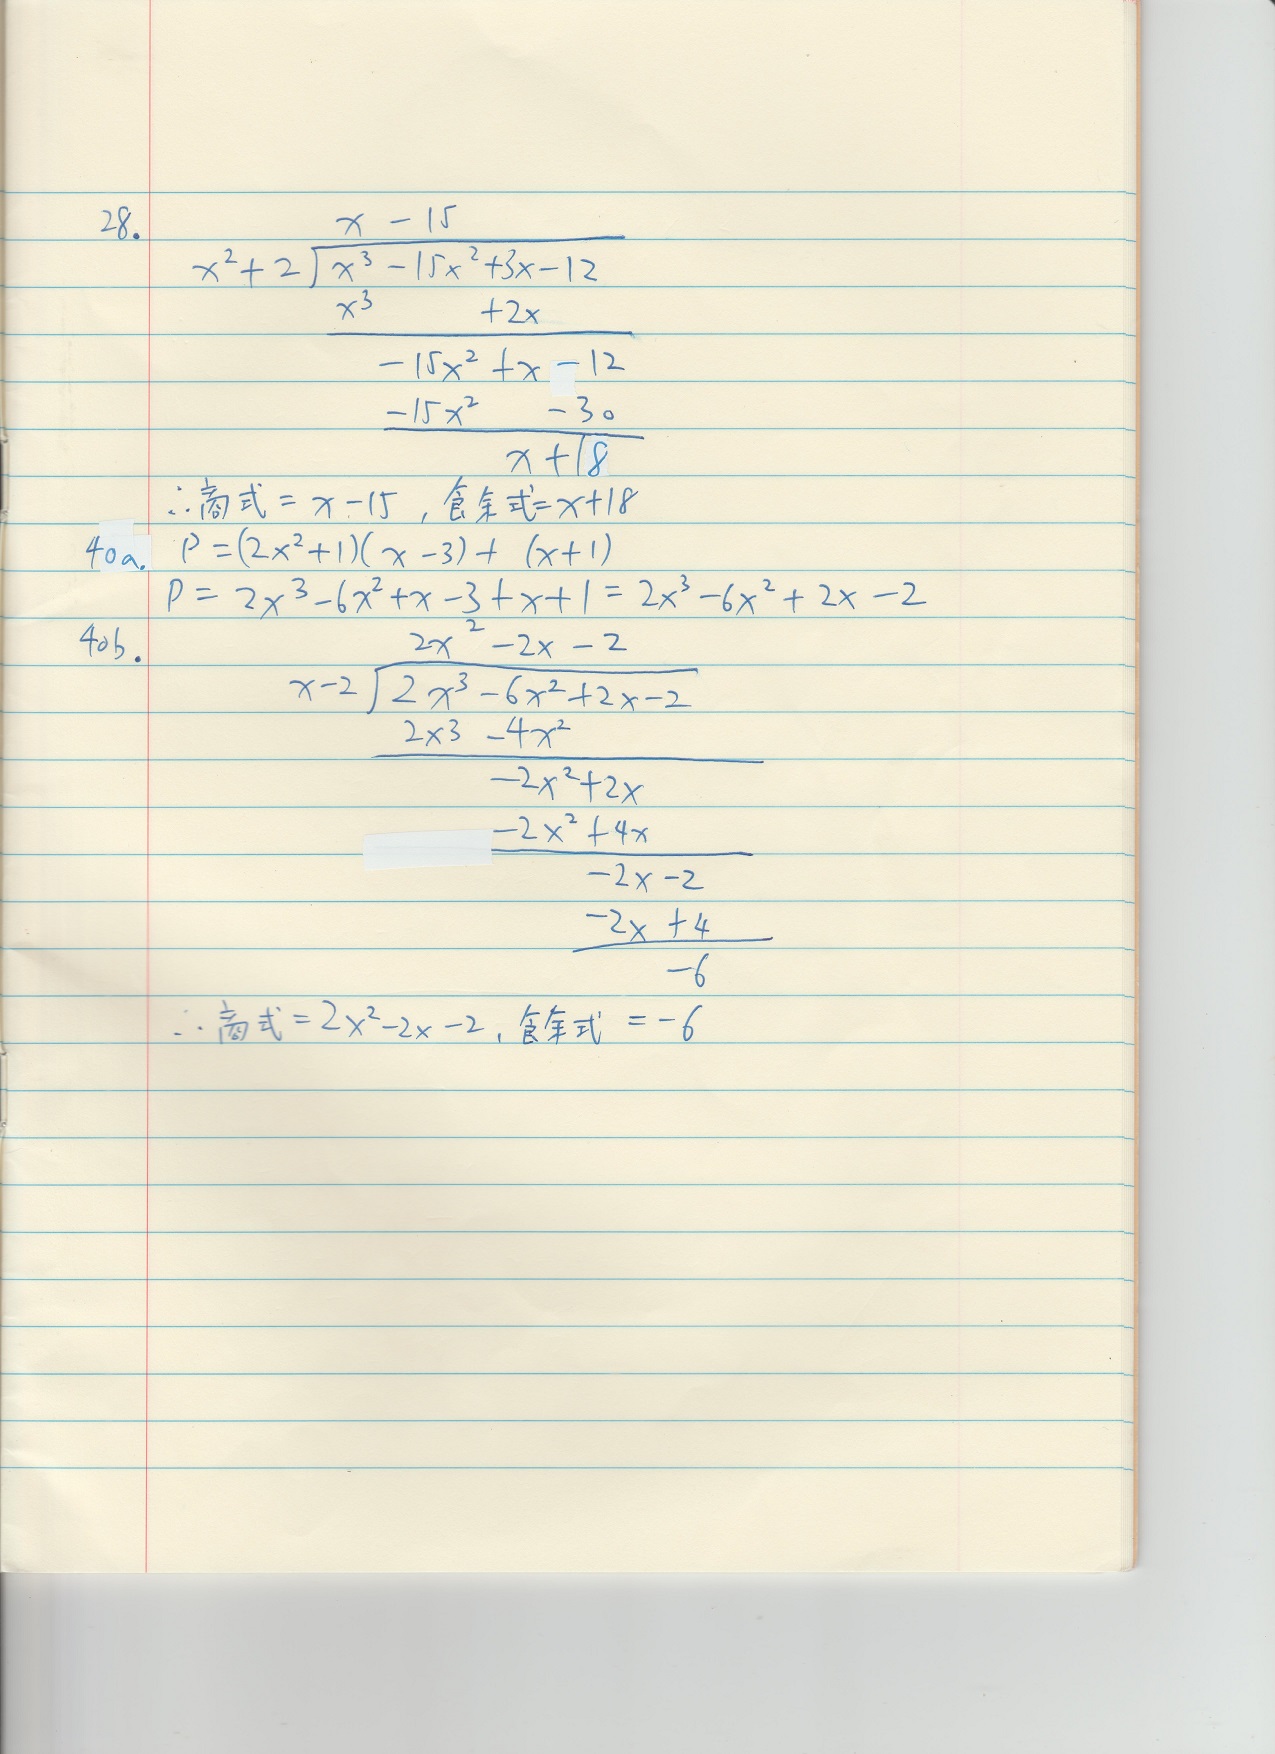 28. x - 15
x²+2 ) x³ -15x²+3x-12
x³ +2x
-15x² +x -12
-15x² -30
x+18
∴商式= x-15, 餘式=x+18
40a. P=(2x²+1)(x-3)+(x+1)
P= 2x³-6x²+x-3+x+1=2x³-6x²+2x-2
40b. 2x² -2x -2
x-2 ) 2x³-6x²+2x-2
2x3 -4x²
-2x²+2x
-2x²+4x
-2x-2
-2x +4
-6
∴商式=2x²-2x-2, 餘式 =-6